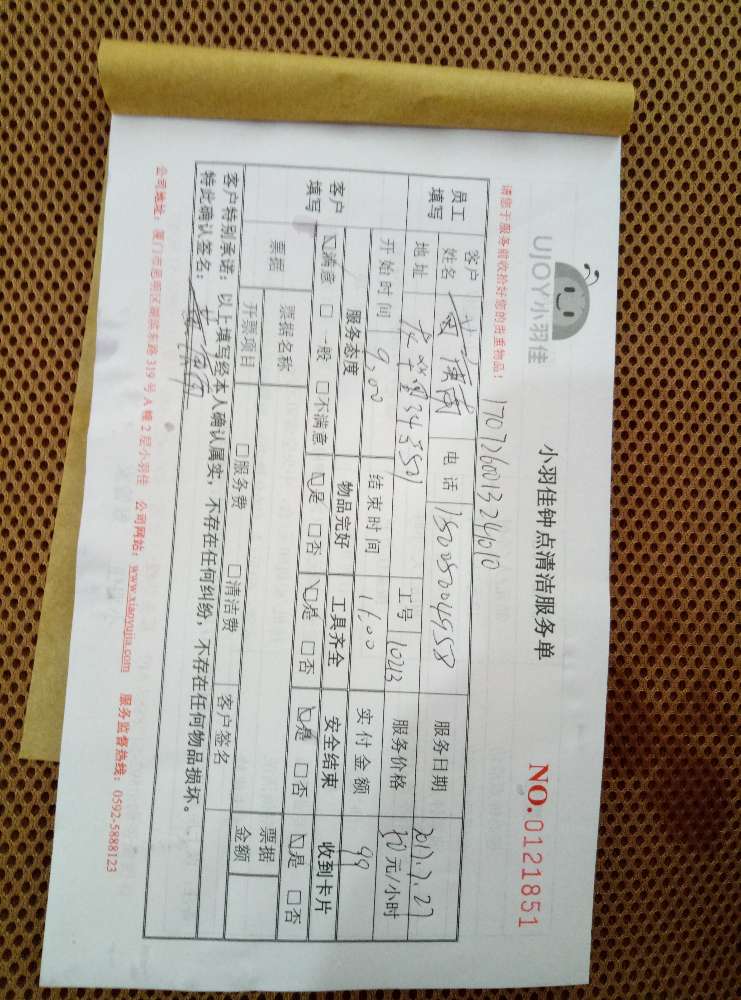 UJOY小羽佳
小羽佳钟点清洁服务单
NO.0121851
请您于服务前收拾好您的贵重物品！
170726001324010
员工填写 客户姓名 电话 15005004958 服务日期 2017.7.27
地址 工号 10213 服务价格 50元/小时
开始时间 9:00 结束时间 11:00 实付金额 99
客户填写 服务态度 物品完好 工具齐全 安全结束 收到卡片
☑满意 □一般 □不满意 ☑是 □否 ☑是 □否 ☑是 □否 ☑是 □否
票据 票据名称 票据金额
开票项目 □服务费 □清洁费 客户签名
客户特别承诺：以上填写经本人确认属实，不存在任何纠纷，不存在任何物品损坏。
特此确认签名：
公司地址：厦门市思明区湖滨东路319号A幢2层小羽佳 公司网站：www.xiaoyujia.com 服务监督热线：0592-5888123